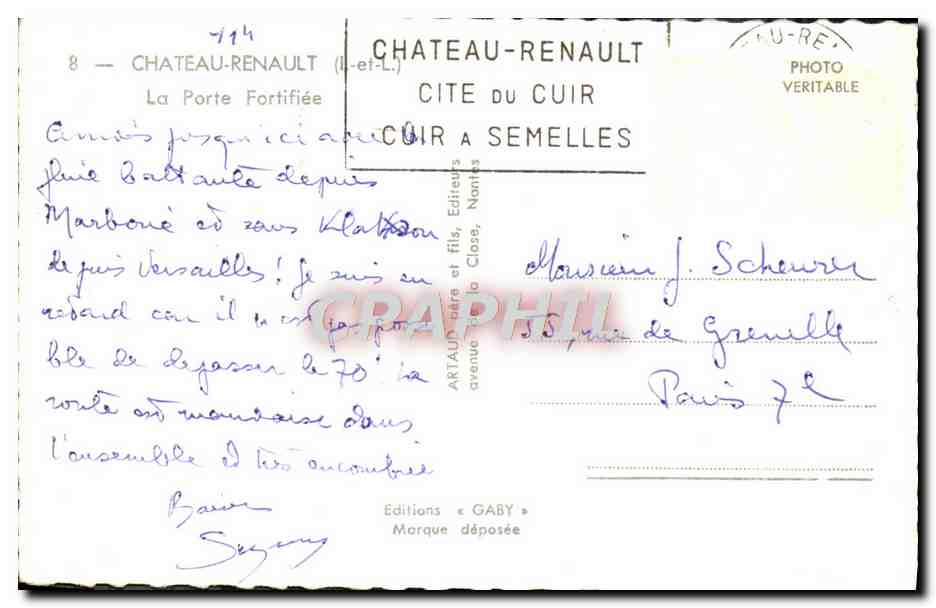 114
8 — CHATEAU-RENAULT (I.-et-L.)
La Porte Fortifiée
CHATEAU-RENAULT
CITE DU CUIR
CUIR A SEMELLES
PHOTO
VERITABLE
jusqu'ici avec la
pluie battante depuis
Marboué et sans Klaxon
depuis Versailles ! Je suis en
retard car il n'est pas possi
ble de dépasser le 70 ! La
route est mauvaise dans
l'ensemble et très encombrée
Suzanne
ARTAUD père et fils, Editeurs
avenue de la Close, Nantes
Monsieur J. Scheurer
55 rue de Grenelle
Paris 7e
Editions « GABY »
Marque déposée
CRAPHIL